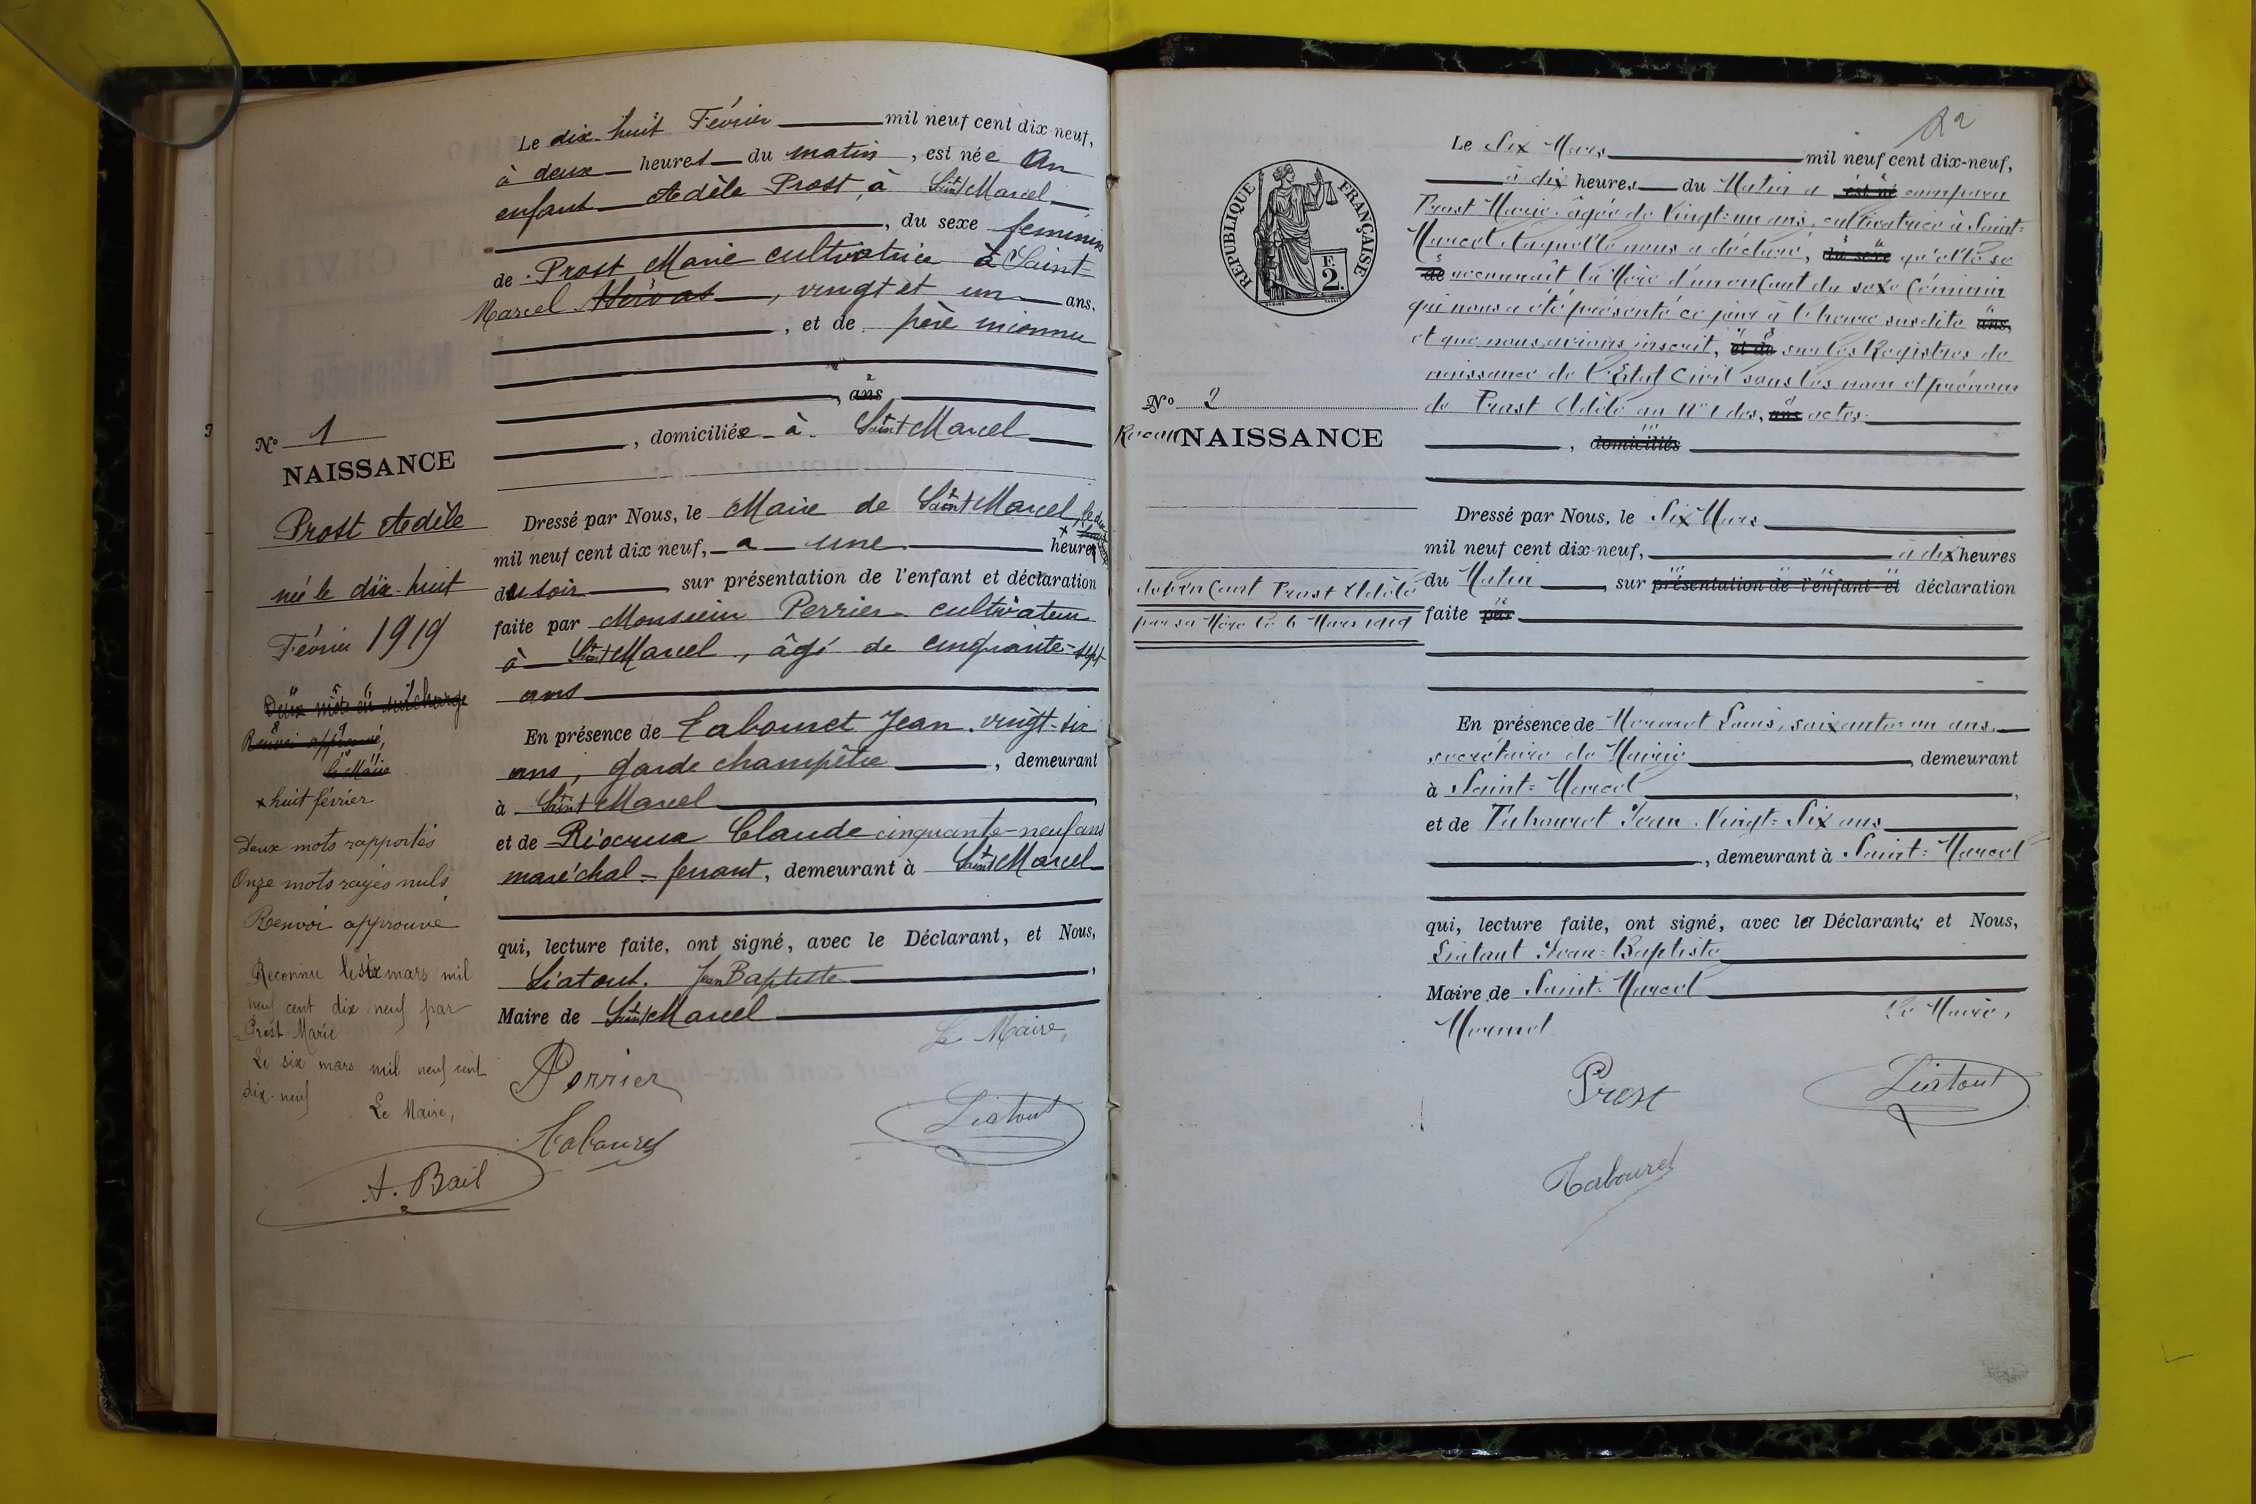 Le dix-huit Février mil neuf cent dix-neuf,
à deux heures du matin, est née un
enfant Adèle Prost, à Saint Marcel
, du sexe féminin
de Prost Marie cultivatrice à Saint-
Marcel, vingt et un ans,
, et de père inconnu
, ans
, domiciliée à Saint Marcel
Dressé par Nous, le Maire de Saint Marcel, le dix
mil neuf cent dix neuf, à une heure
du soir sur présentation de l'enfant et déclaration
faite par Monsieur Perrier cultivateur
à Saint Marcel, âgé de cinquante-sept
ans
En présence de Tabouret Jean, vingt-six
ans, garde champêtre, demeurant
à Saint Marcel
et de Claude cinquante-neuf ans
maréchal-ferrant, demeurant à Saint Marcel
qui, lecture faite, ont signé, avec le Déclarant, et Nous,
Liatout Jean Baptiste,
Maire de Saint Marcel
Le Maire,
Perrier
Liatout
Tabouret
N° 1
NAISSANCE
Prost Adèle
née le dix-huit
Février 1919
Deux mots en surcharge
Renvoi approuvé,
le Maire
x huit février
Deux mots rapportés
Onze mots rayés nuls
Renvoi approuvé
Reconnu le six mars mil
neuf cent dix neuf par
Prost Marie
Le six mars mil neuf cent
dix-neuf
Le Maire,
A. Bail
RÉPUBLIQUE FRANÇAISE
2F.
N° 2
NAISSANCE
de l'enfant Prost Adèle
par sa Mère le 6 Mars 1919
Le Six Mars mil neuf cent dix-neuf,
à dix heures du Matin a est né comparu
Prost Marie, âgée de Vingt-un ans, cultivatrice à Saint-
Marcel, laquelle nous a déclaré, du sexe qu'elle se
de reconnaît la Mère d'un enfant du sexe féminin
qui nous a été présenté ce jour à l'heure susdite ans,
et que nous avions inscrit, et de sur les Registres de
naissance de l'Etat Civil sous les nom et prénom
de Prost Adèle au N° 1 des, ans actes.
, domiciliés
Dressé par Nous, le Six Mars
mil neuf cent dix-neuf, à dix heures
du Matin, sur présentation de l'enfant et déclaration
faite par
En présence de Louis, soixante-un ans,
secrétaire de Mairie, demeurant
à Saint-Marcel,
et de Tabouret Jean Vingt-Six ans
, demeurant à Saint-Marcel
qui, lecture faite, ont signé, avec la Déclarante et Nous,
Liatout Jean-Baptiste
Maire de Saint-Marcel
Le Maire,
Prost
Liatout
Tabouret